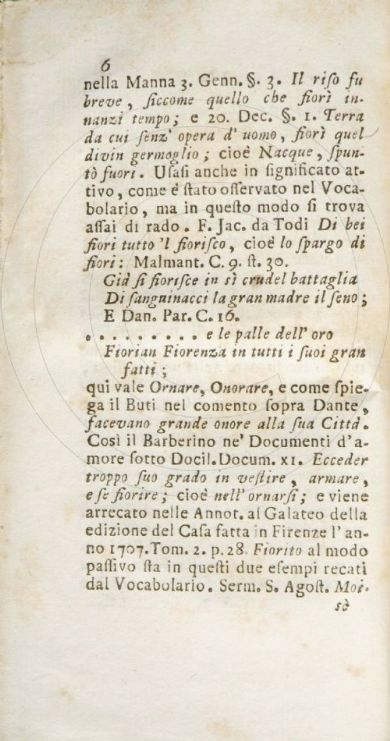 6
nella Manna 3. Genn. §. 3. Il riſo fu
breve, ſiccome quello che fiorì in-
nanzi tempo; e 20. Dec. §. 1. Terra
da cui ſenz' opera d' uomo, fiorì quel
divin germoglio; cioè Nacque, ſpun-
tò fuori. Uſaſi anche in ſignificato at-
tivo, come è ſtato oſſervato nel Voca-
bolario, ma in queſto modo ſi trova
aſſai di rado. F. Jac. da Todi Di bei
fiori tutto 'l fioriſco, cioè lo ſpargo di
fiori: Malmant. C. 9. ſt. 30.
Già ſi fioriſce in sì crudel battaglia
Di ſanguinacci la gran madre il ſeno;
E Dan. Par. C. 16.
. . . . . . . . . e le palle dell' oro
Fiorian Fiorenza in tutti i ſuoi gran
fatti;
qui vale Ornare, Onorare, e come ſpie-
ga il Buti nel comento ſopra Dante,
facevano grande onore alla ſua Città.
Così il Barberino ne' Documenti d' a-
more ſotto Docil. Docum. XI. Ecceder
troppo ſuo grado in veſtire, armare,
e ſe fiorire; cioè nell' ornarſi; e viene
arrecato nelle Annot. al Galateo della
edizione del Caſa fatta in Firenze l' an-
no 1707. Tom. 2. p. 28. Fiorito al modo
paſſivo ſta in queſti due eſempi recati
dal Vocabolario. Serm. S. Agoſt. Moi-
sè